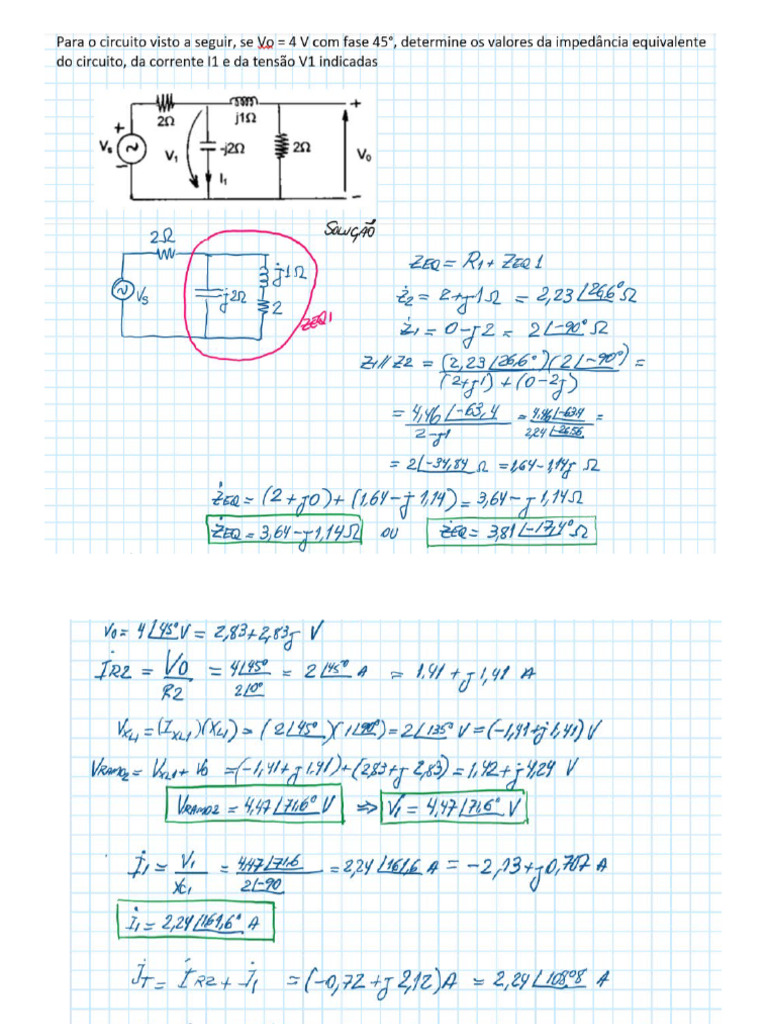 Para o circuito visto a seguir, se Vo = 4 V com fase 45°, determine os valores da impedância equivalente
do circuito, da corrente I1 e da tensão V1 indicadas
2Ω
j1Ω
+
+
Vs
V₁
-j2Ω
2Ω
V₀
I₁
-
-
SOLUÇÃO
2Ω
Vs
j2Ω
j1Ω
2
ZEQ1
ZEQ = R1 + ZEQ1
Ż2 = 2+j1Ω = 2,23∠26,6° Ω
Ż1 = 0-j2 = 2∠-90° Ω
Z1//Z2 = (2,23∠26,6°)(2∠-90°) =
(2+j1) + (0-2j)
= 4,46∠-63,4 = 4,46∠-63,4 =
2-j1 2,24∠-26,56
= 2∠-34,84 Ω = 1,64-1,14j Ω
ŻEQ = (2+j0)+(1,64-j1,14) = 3,64-j1,14Ω
ŻEQ = 3,64-j1,14Ω OU ŻEQ = 3,81∠-17,4° Ω
V0 = 4∠45° V = 2,83+2,83j V
İR2 = V0 = 4∠45° = 2∠45° A = 1,41+j1,41 A
R2 2∠0°
VXL1 = (IXL1)(XL1) = (2∠45°)(1∠90°) = 2∠135° V = (-1,41+j1,41) V
VRAMO2 = VXL1 + V0 = (-1,41+j1,41)+(2,83+j2,83) = 1,42+j4,24 V
VRAMO2 = 4,47∠71,6° V ⇒ V̇1 = 4,47∠71,6° V
İ1 = V1 = 4,47∠71,6 = 2,24∠161,6 A = -2,13+j0,707 A
XC1 2∠-90
İ1 = 2,24∠161,6° A
İT = İR2 + İ1 = (-0,72+j2,12)A = 2,24∠108,8 A